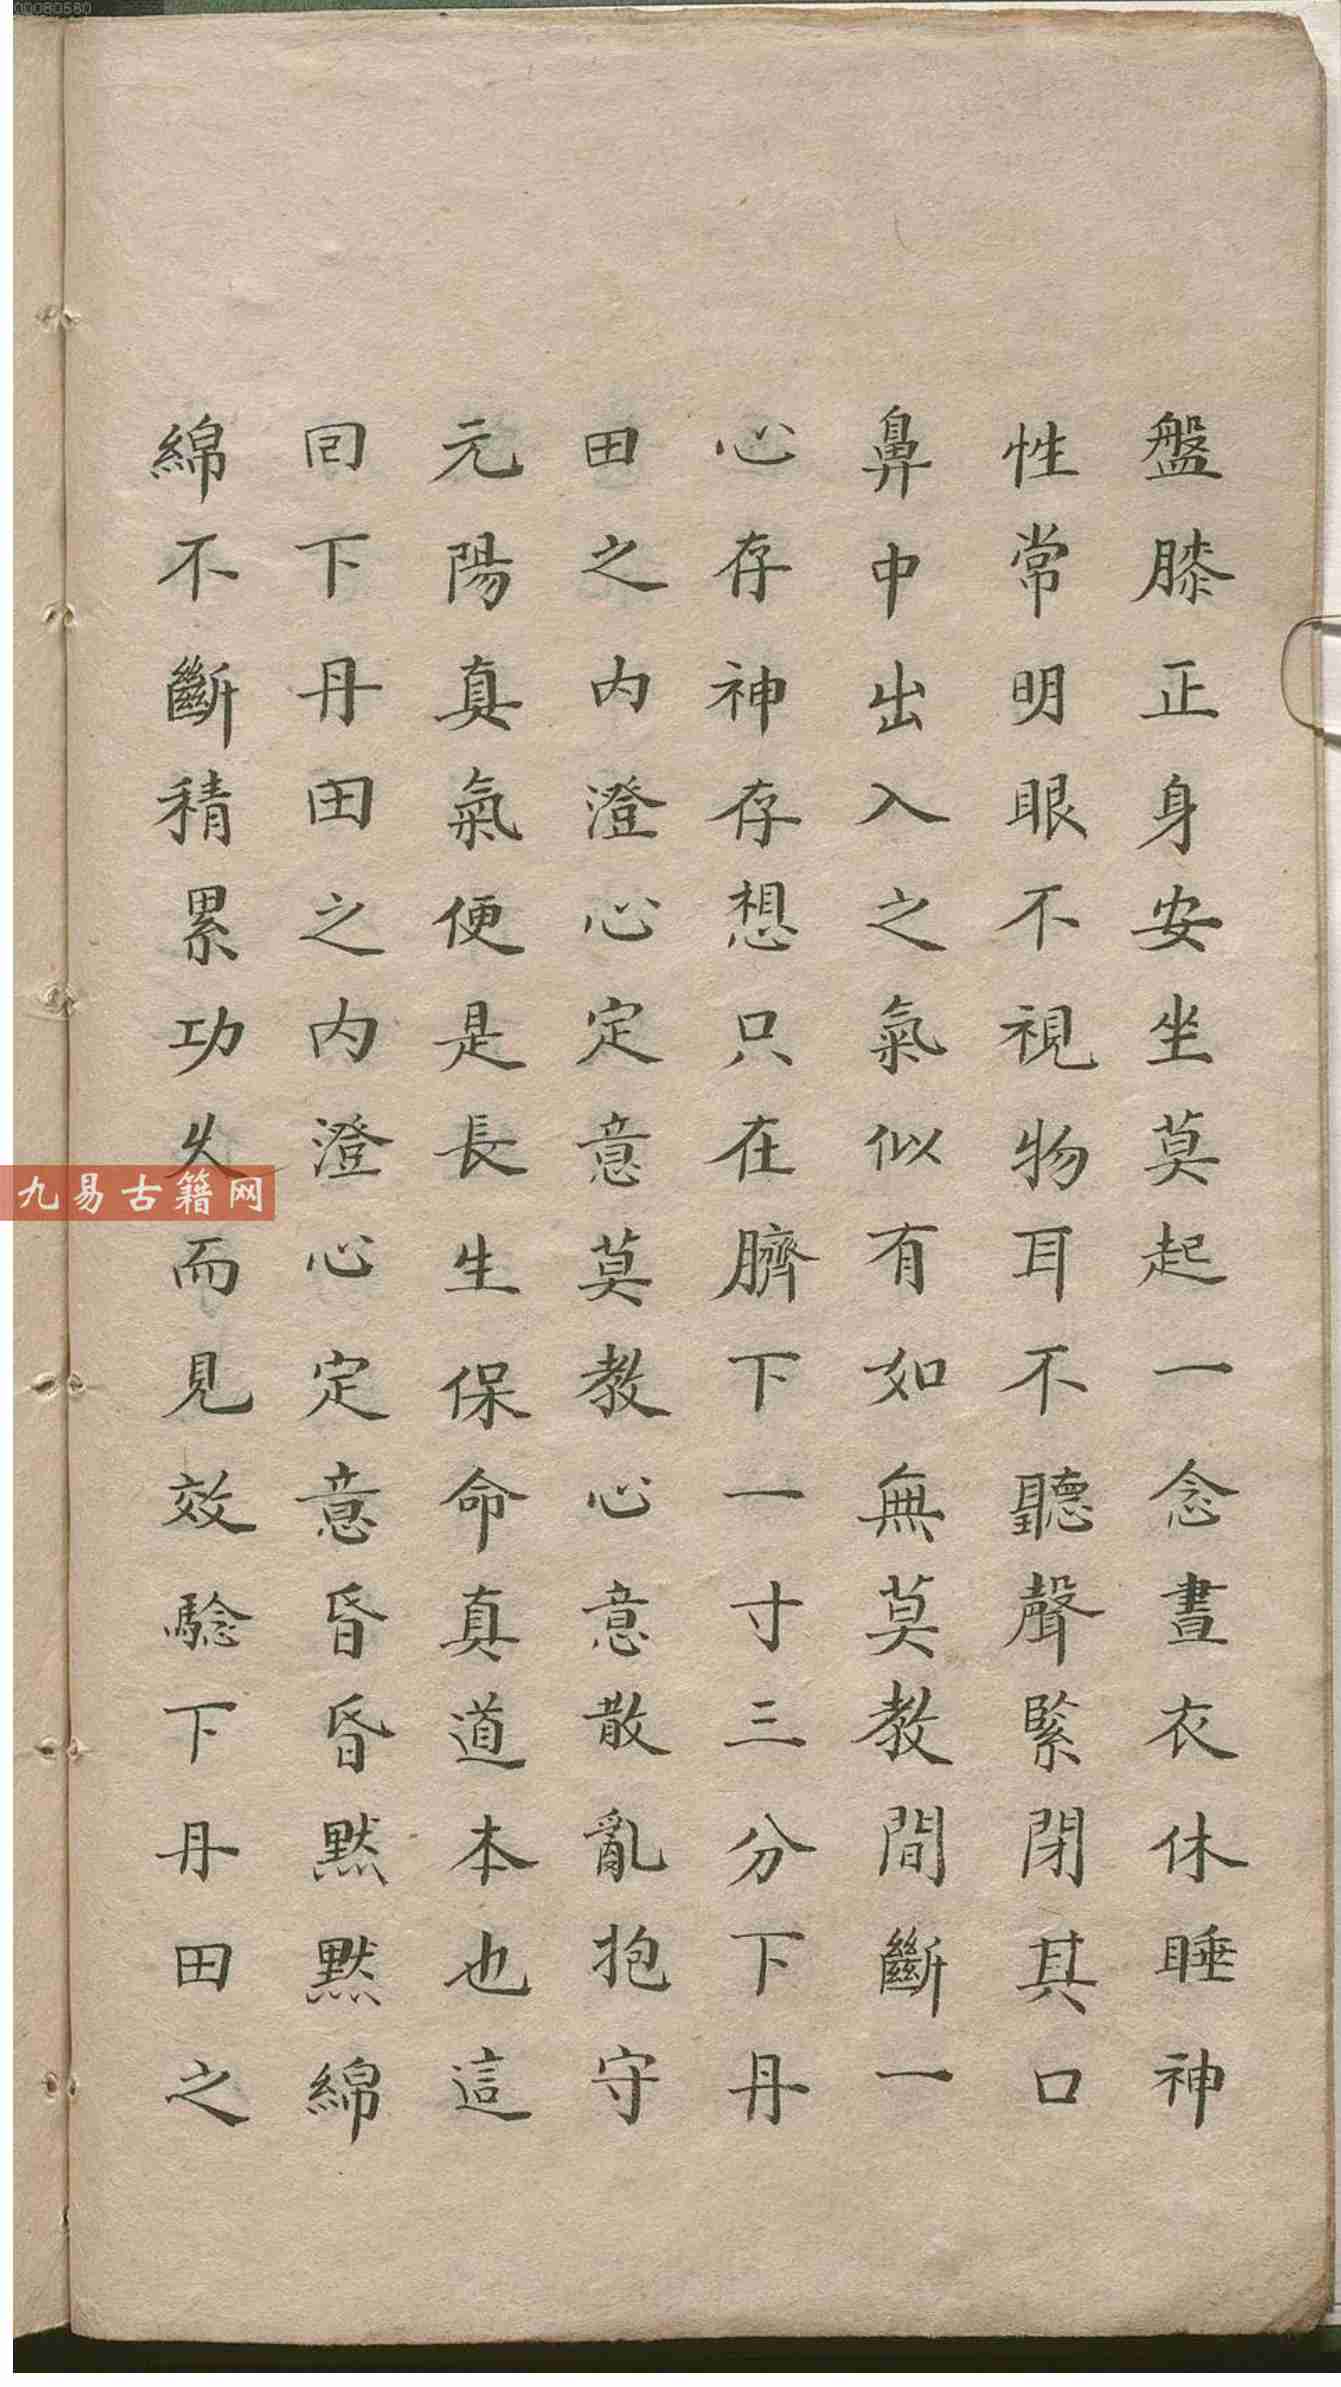 盤膝正身安坐莫起一念晝衣休睡神
性常明眼不視物耳不聽聲緊閉其口
鼻中出入之氣似有如無莫教間斷一
心存神存想只在臍下一寸三分下丹
田之内澄心定意莫教心意散亂抱守
元陽真氣便是長生保命真道本也這
囘下丹田之内澄心定意昏昏默默綿
綿不斷積累功久而見效驗下丹田之
九易古籍网
00080580